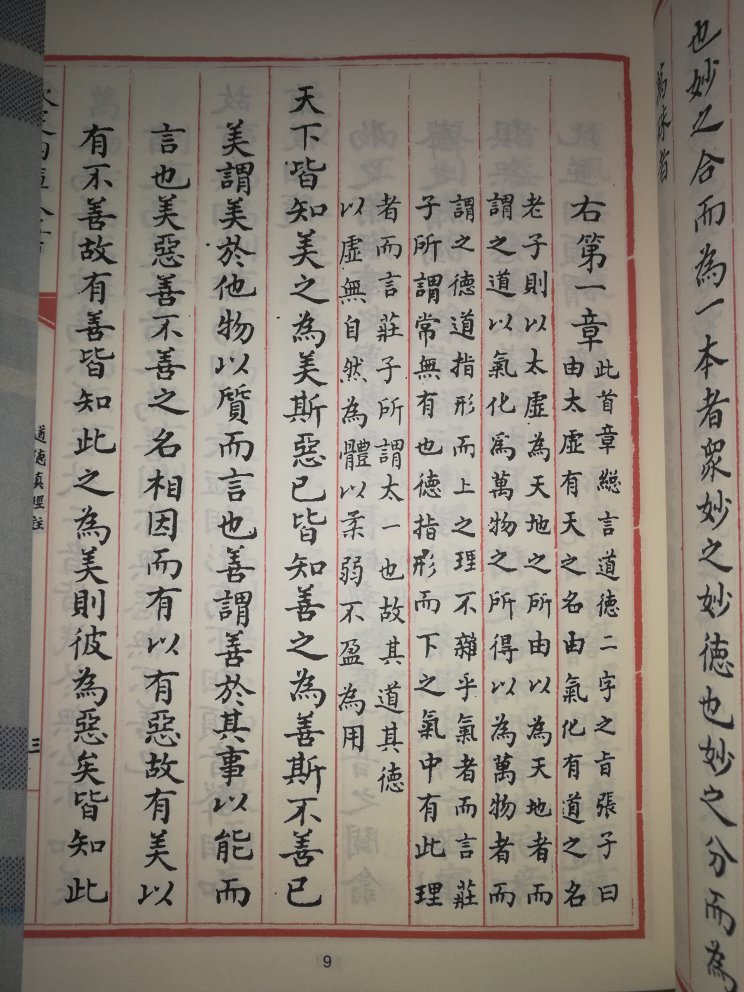 也妙之合而為一本者眾妙之妙徳也妙之分而為
萬殊者
右第一章
此首章總言道徳二字之㫖張子曰
由太虛有天之名由氣化有道之名
老子則以太虛為天地之所由以為天地者而
謂之道以氣化為萬物之所得以為萬物者而
謂之徳道指形而上之理不雜乎氣者而言莊
子所謂常無有也徳指形而下之氣中有此理
者而言莊子所謂太一也故其道其徳
以虛無自然為體以柔弱不盈為用
天下皆知美之為美斯惡已皆知善之為善斯不善已
美謂美於他物以質而言也善謂善於其事以能而
言也美惡善不善之名相因而有以有惡故有美以
有不善故有善皆知此之為美則彼為惡矣皆知此
道徳真經註
三
9